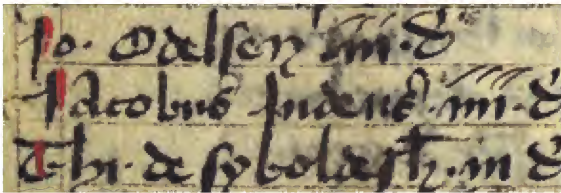 Jo. Odelsey iiii. d
Jacobus Judeus. iiii. d
Thi. de syboldesh. iii d